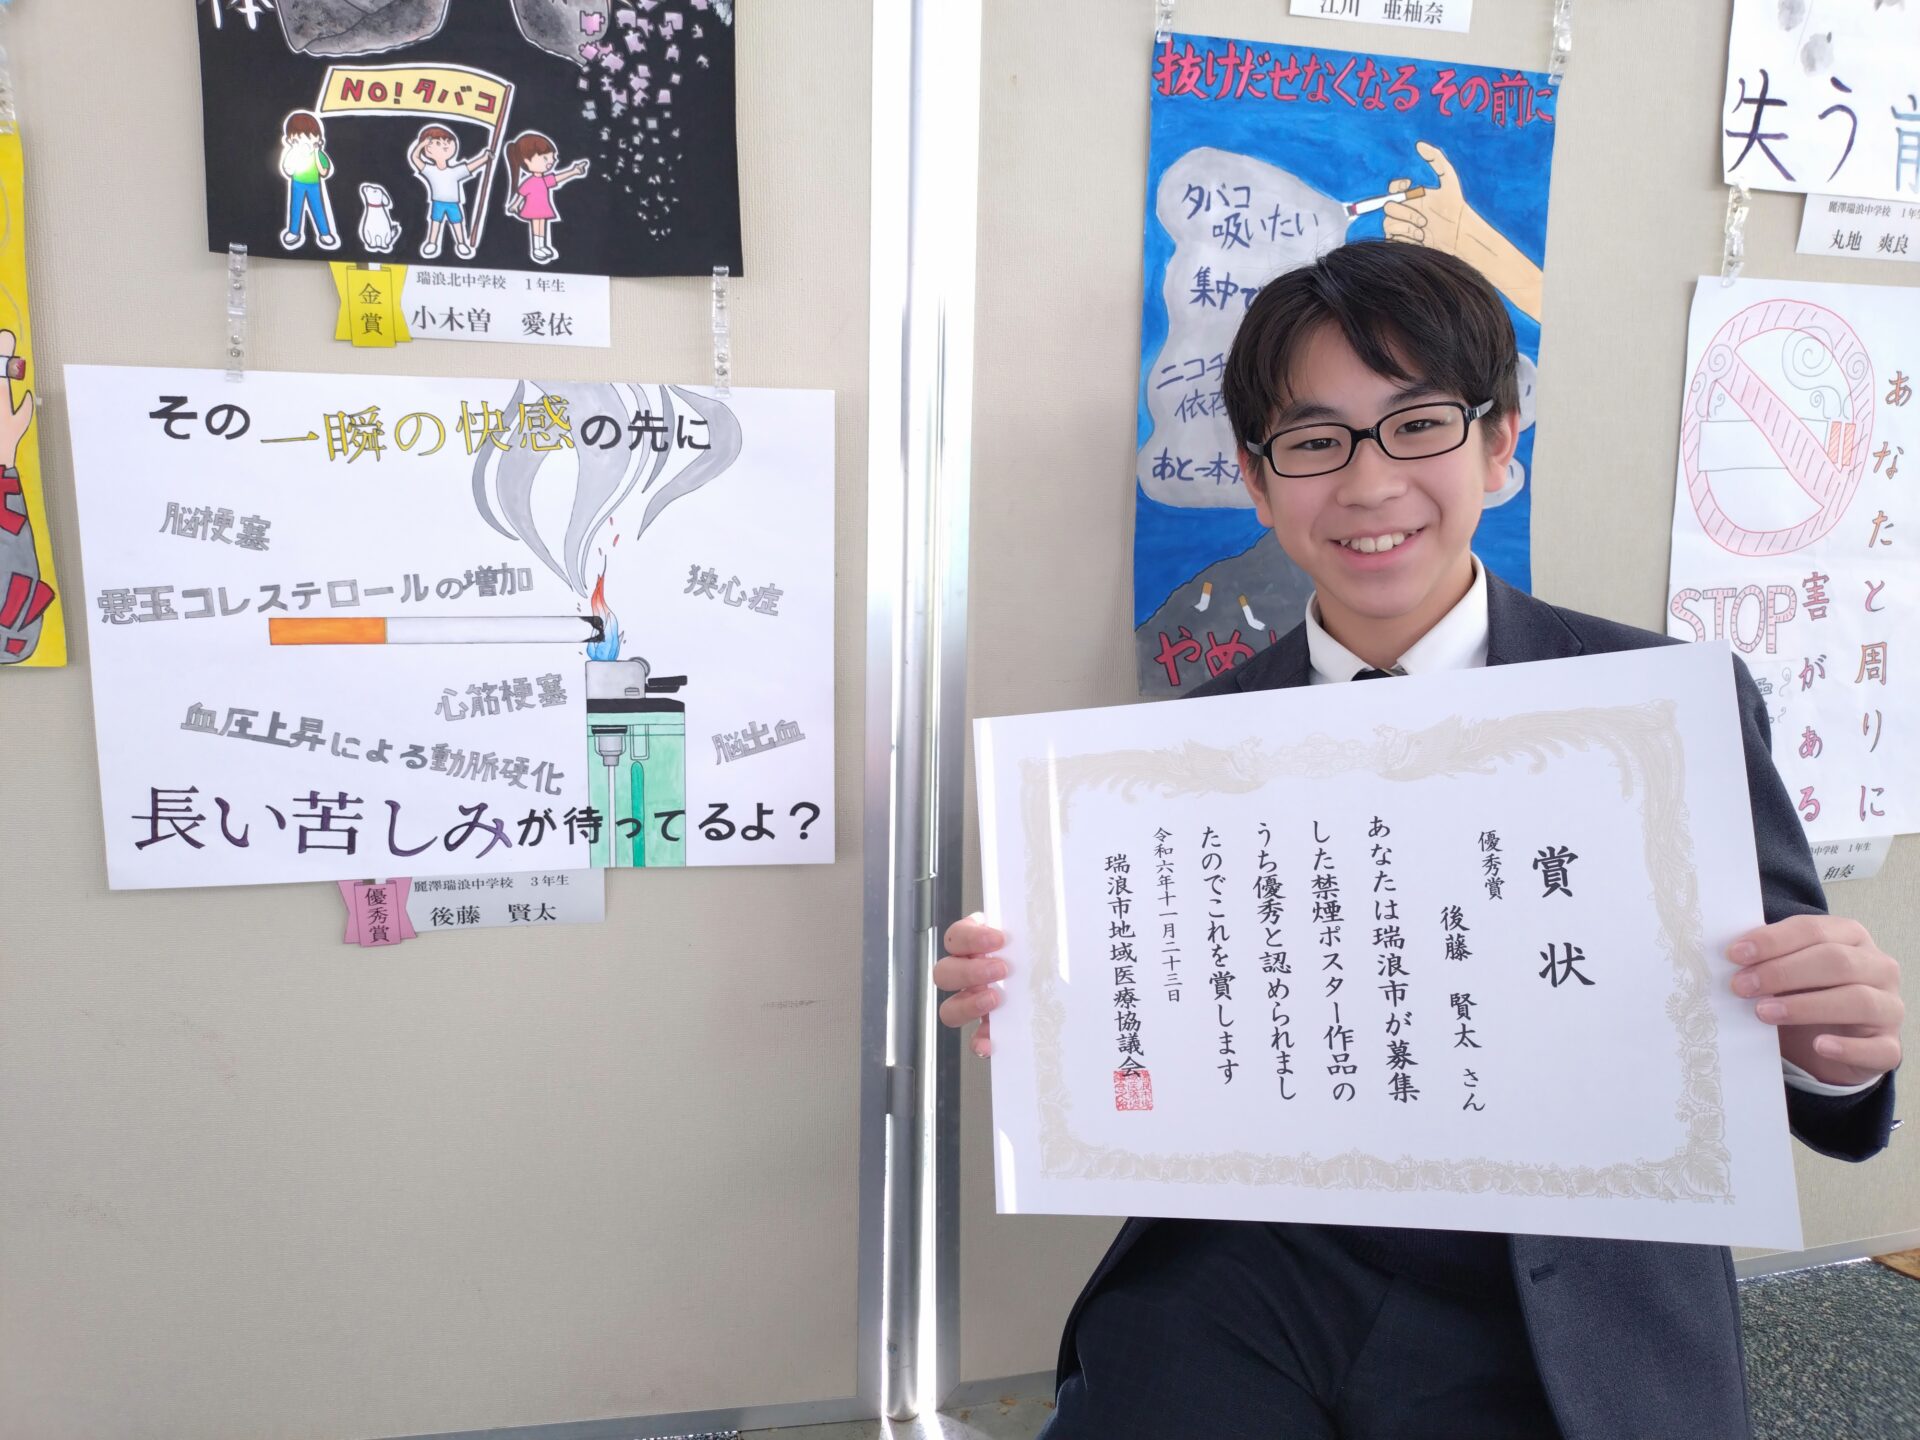 体
NO!タバコ
金賞
瑞浪北中学校 1年生
小木曽 愛依
その一瞬の快感の先に
脳梗塞
悪玉コレステロールの増加
狭心症
心筋梗塞
血圧上昇による動脈硬化
脳出血
長い苦しみが待ってるよ?
優秀賞
麗澤瑞浪中学校 3年生
後藤 賢太
江川 亜柚奈
抜けだせなくなる その前に
タバコ
吸いたい
集中で
ニコチ
依存
あと一本
やめ
賞状
優秀賞
後藤 賢太 さん
あなたは瑞浪市が募集
した禁煙ポスター作品の
うち優秀と認められまし
たのでこれを賞します
令和六年十一月二十三日
瑞浪市地域医療協議会
失う前
麗澤瑞浪中学校 1年生
丸地 爽良
あなたと周りに
害がある
STOP
中学校 1年生
和奏